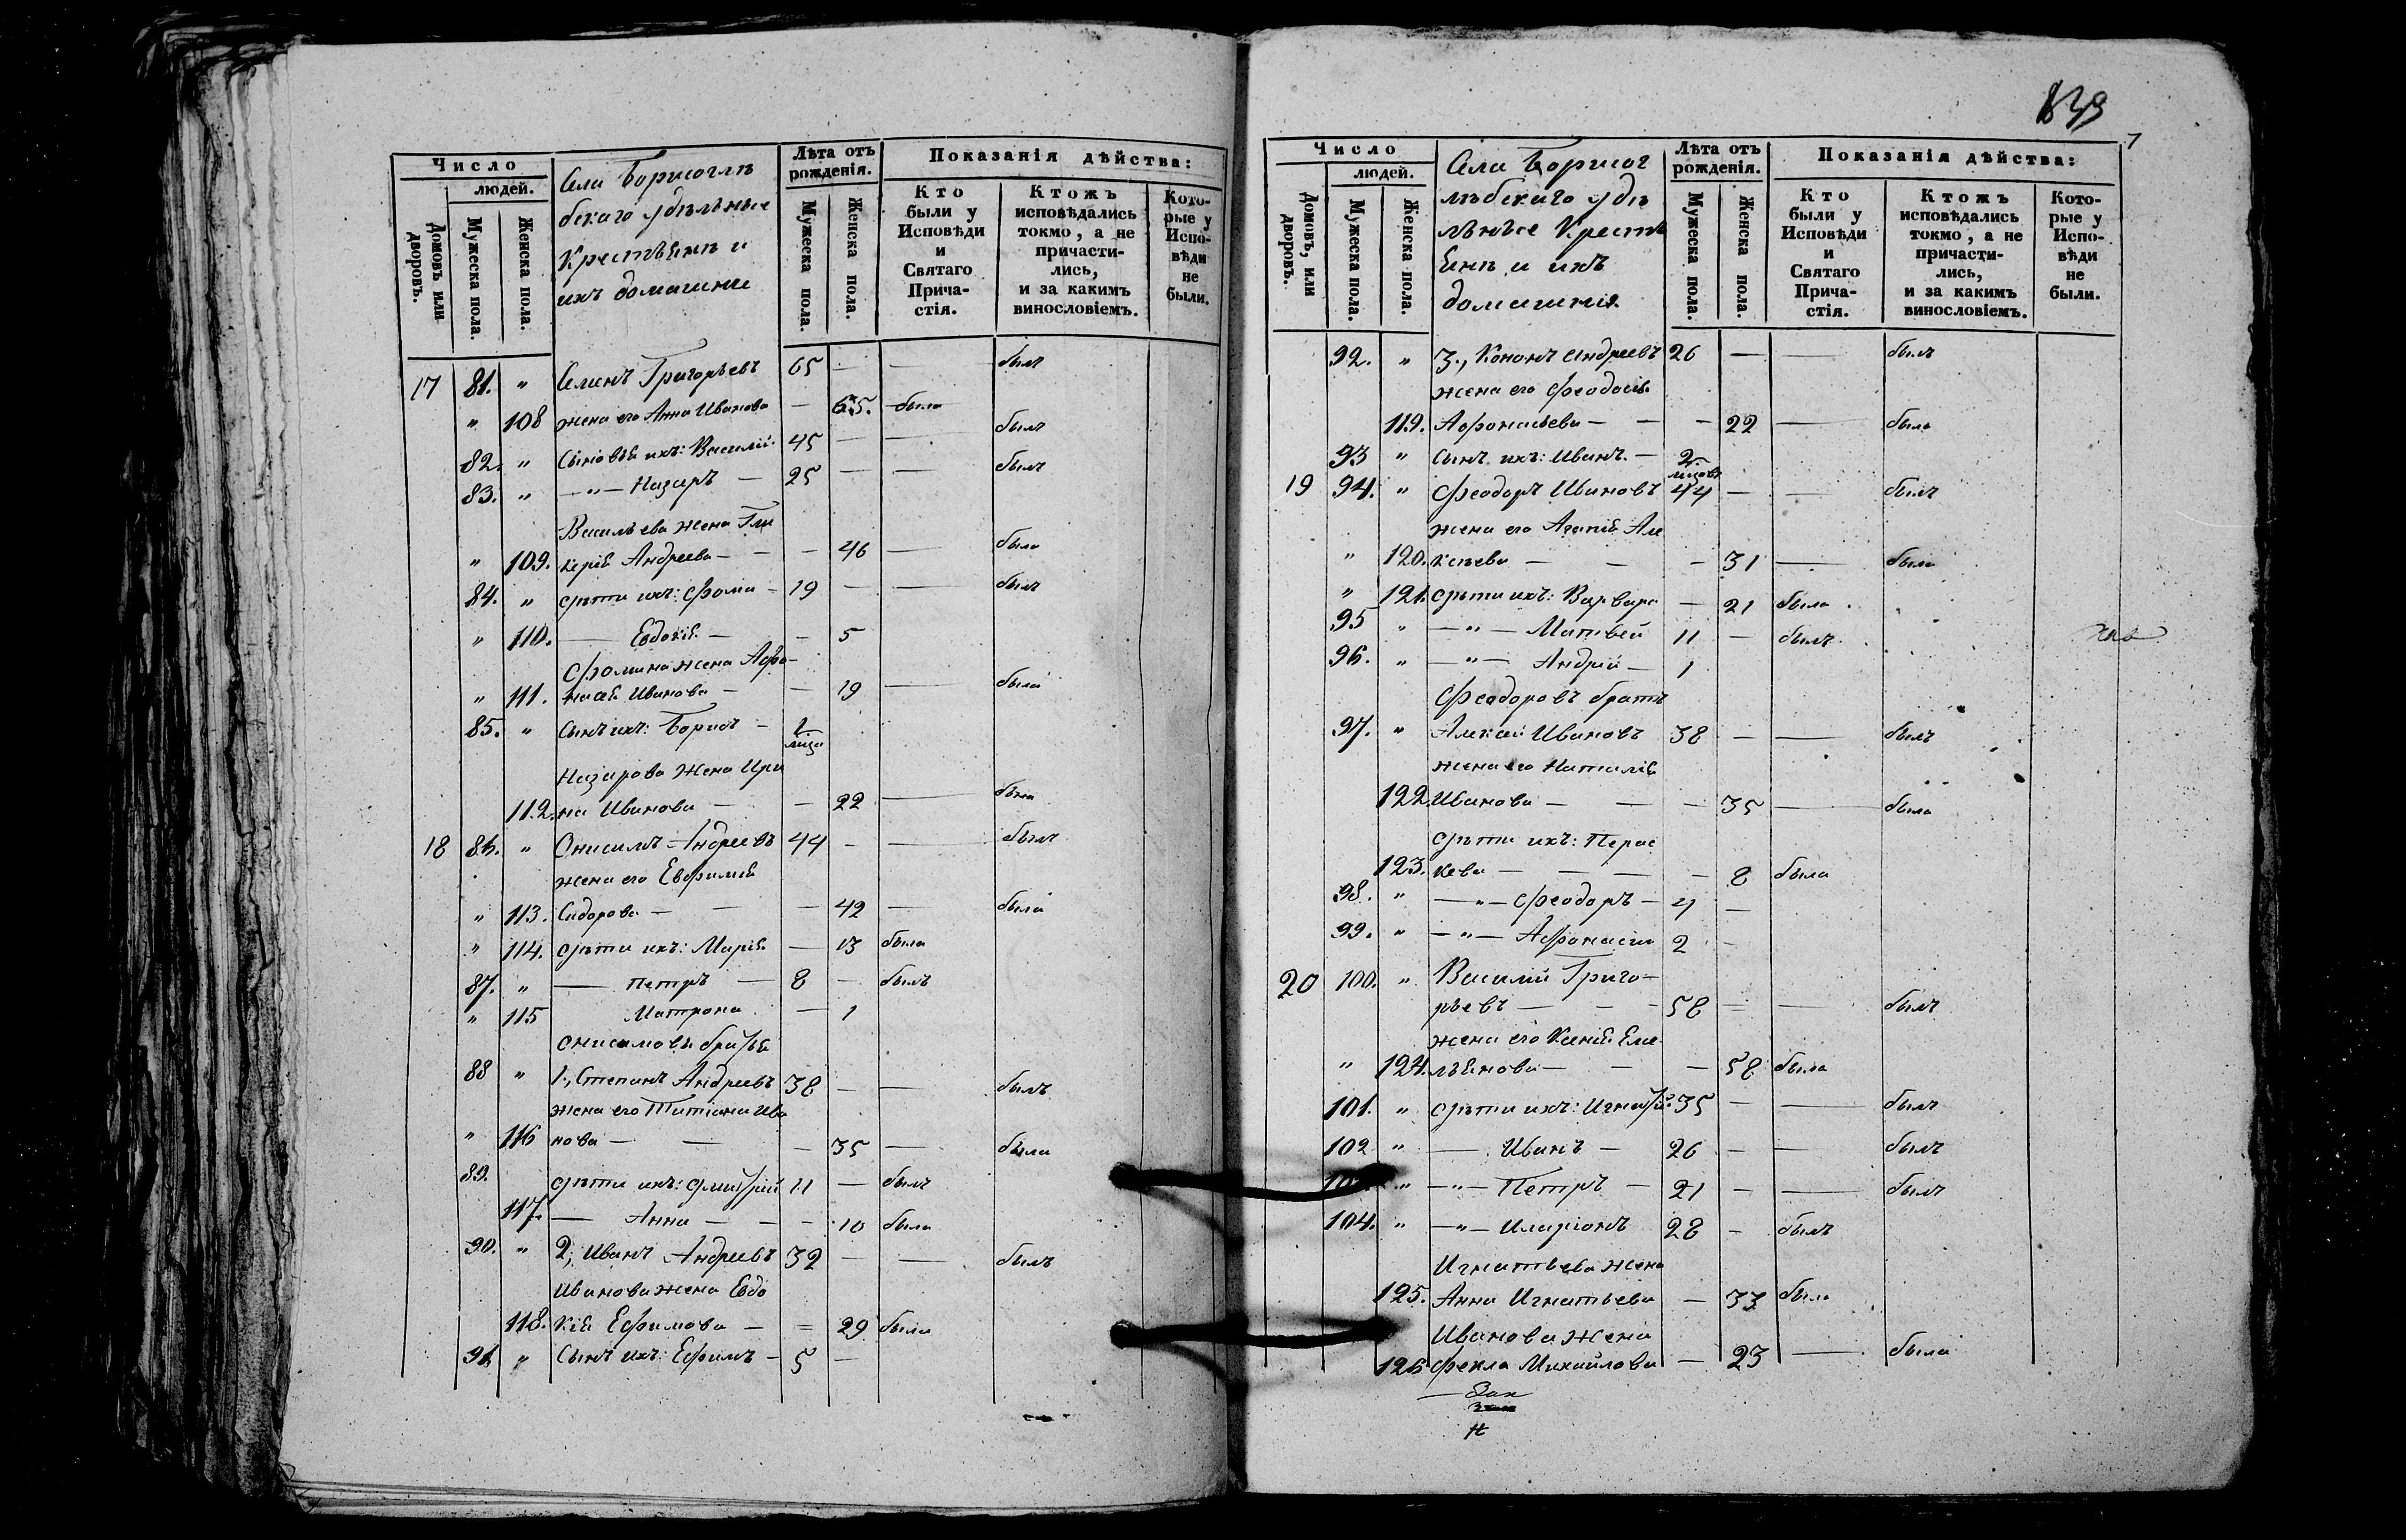 Число
людей.
Домовъ или дворовъ.
Мужеска пола.
Женска пола.
Села Борисоглѣ
бскаго удѣльные
Крестьяне и
ихъ домашние
Лѣта отъ рожденія.
Мужеска пола.
Женска пола.
Показанія дѣйства:
Кто были у Исповѣди и Святаго Прича-стія.
Ктожъ исповѣдались токмо, а не причасти-лись, и за какимъ винословіемъ.
Кото-рые у Испо-вѣди не были.
17 81. " Григорьевъ 65 — — былъ
" 108 жена его Анна Иванова — 65. была
82. " Сыновья ихъ: Василій 45 — — былъ
83. " — " — Назаръ — 25 — — былъ
Васильева жена Гли
" 109. керія Андреева — — — 46 — была
84. " дѣти ихъ: Фома — 19 — — былъ
" 110. — Евдокія — — 5
Фомина жена Афа-
" 111. насія Иванова — — 19 — была
85. " Сынъ ихъ: Борисъ —
Назарова жена Ири
112. на Иванова — — 22 — была
18 86. " Онисимъ Андреевъ 44 — — былъ
жена его Евфимія
" 113. Сидорова — — — 42 — была
" 114. дѣти ихъ: Марія — 13 была
87. " — Петръ — 8 — былъ
" 115 Матрона — 1
Онисимовы братья
88 " 1., Степанъ Андреевъ 38 — — былъ
жена его Татіана Ива
" 116 нова — — — 35 — была
89. дѣти ихъ: Дмитрій 11 — былъ
117. — Анна — — — 10 была
90. " 2, Иванъ Андреевъ 32 — — былъ
Иванова жена Евдо
118. кія Ефимова — = 29 была
91. " Сынъ ихъ: Ефимъ — 5 —
839
7
Число
людей.
Домовъ, или дворовъ.
Мужеска пола.
Женска пола.
Села Борисог
лѣбскаго удѣ
льные Кресть
яне и ихъ
домашнія
Лѣта отъ рожденія.
Мужеска пола.
Женска пола.
Показанія дѣйства:
Кто были у Исповѣди и Святаго Прича-стія.
Ктожъ исповѣдались токмо, а не причасти-лись, и за какимъ винословіемъ.
Кото-рые у Испо-вѣди не были.
92. " 3., Кононъ Андреевъ 26 — — былъ
жена его Феодосія
119. Афонасьева — — — 22 — была
93 " Сынъ ихъ: Иванъ. — 2
19 94. " Феодоръ Ивановъ 44 — — былъ
жена его Агапія Але
" 120. ксѣева — — — 31 — была
" 121. дѣти ихъ: Варвара — 21 была
95 " — " — Матвей 11 — былъ
96. " — " — Андрей — 1
Феодоровъ братъ
97. " Алексѣй Ивановъ 38 — — былъ
жена его Наталія
122. Иванова — — — 35 — была
дѣти ихъ: Парас
123. кева — — — — 8 была
98. " — " — Феодоръ — 4 —
99. " — " — Афонасій 2 —
20 100. " Василій Григо-
рьевъ — — — 58 — — былъ
жена его Ксенія Еме
" 124. льянова — — — 58 была
101. " дѣти ихъ: Игнатій 35 — — былъ
102 " — Иванъ — 26 — — былъ
" — " — Петръ — 21 — — былъ
104. " — " — Иларіонъ 28 — былъ
Игнатьева жена
125. Анна Игнатьева — 33 была
Иванова жена
126 Фекла Михайлова — 23 — была